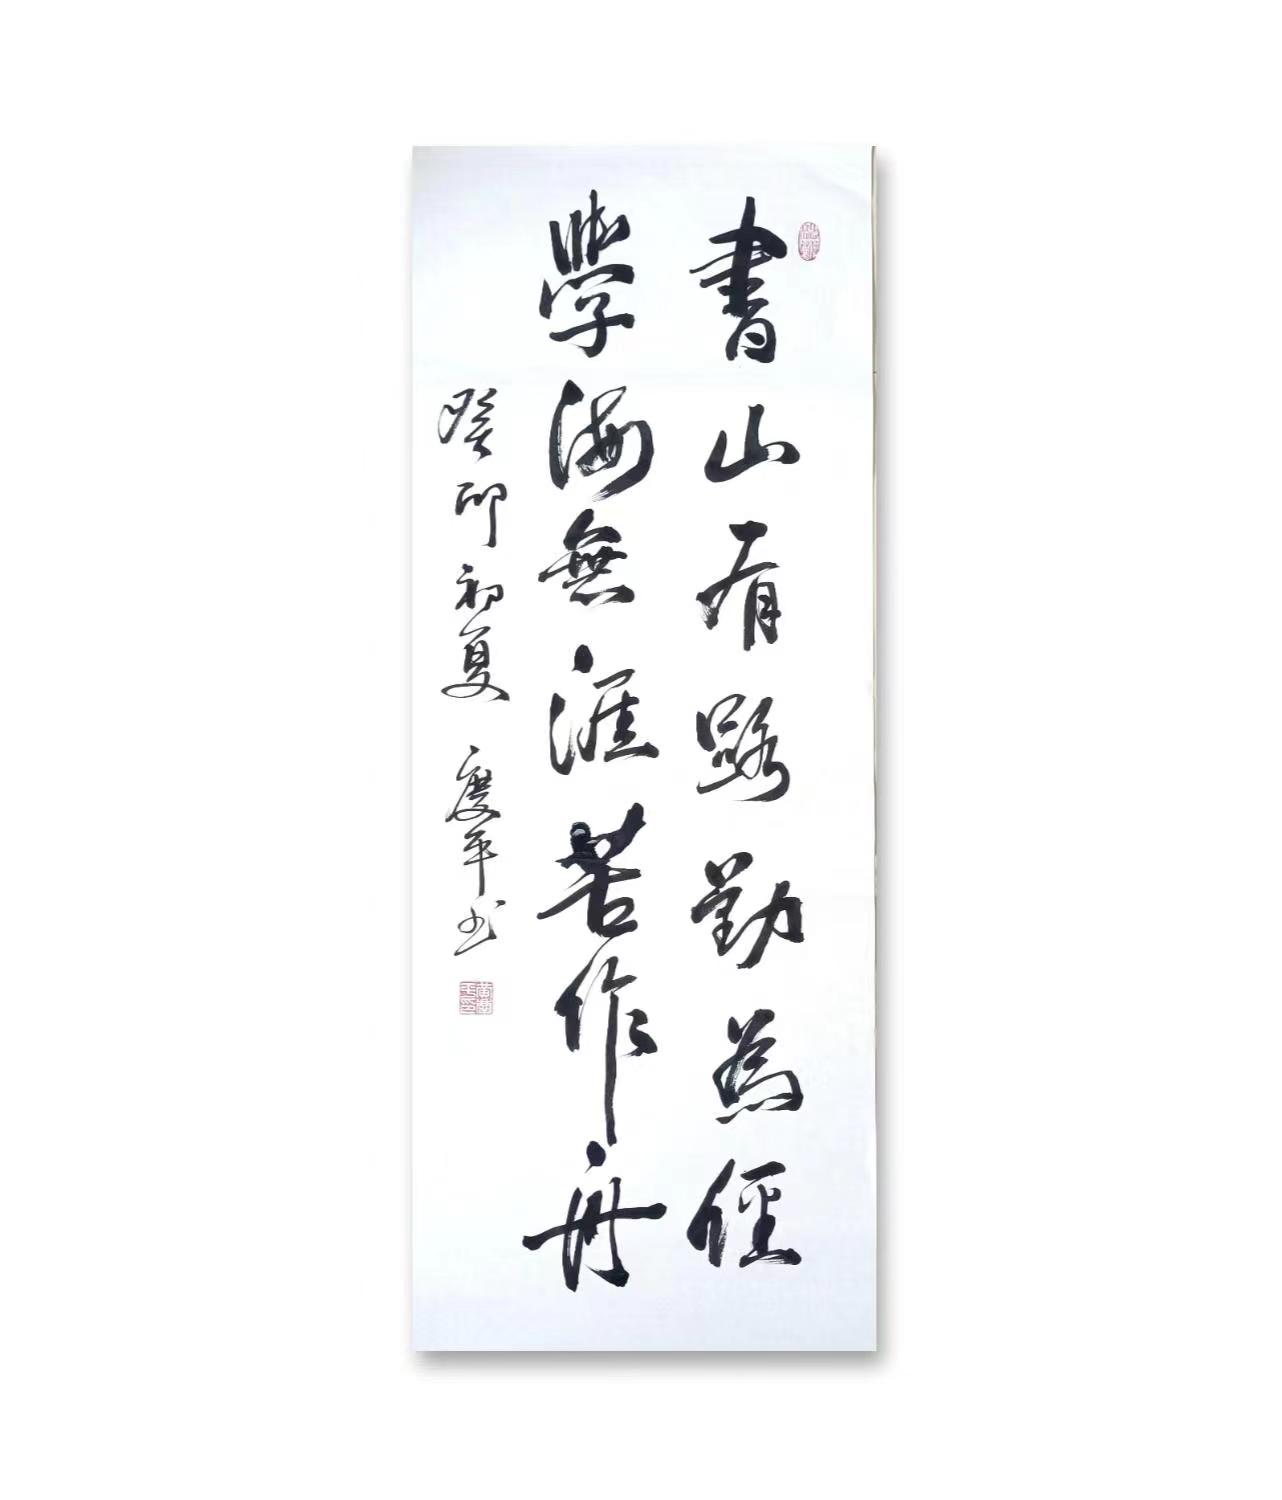 書山有路勤為径
學海無涯苦作舟
癸卯初夏 慶平书